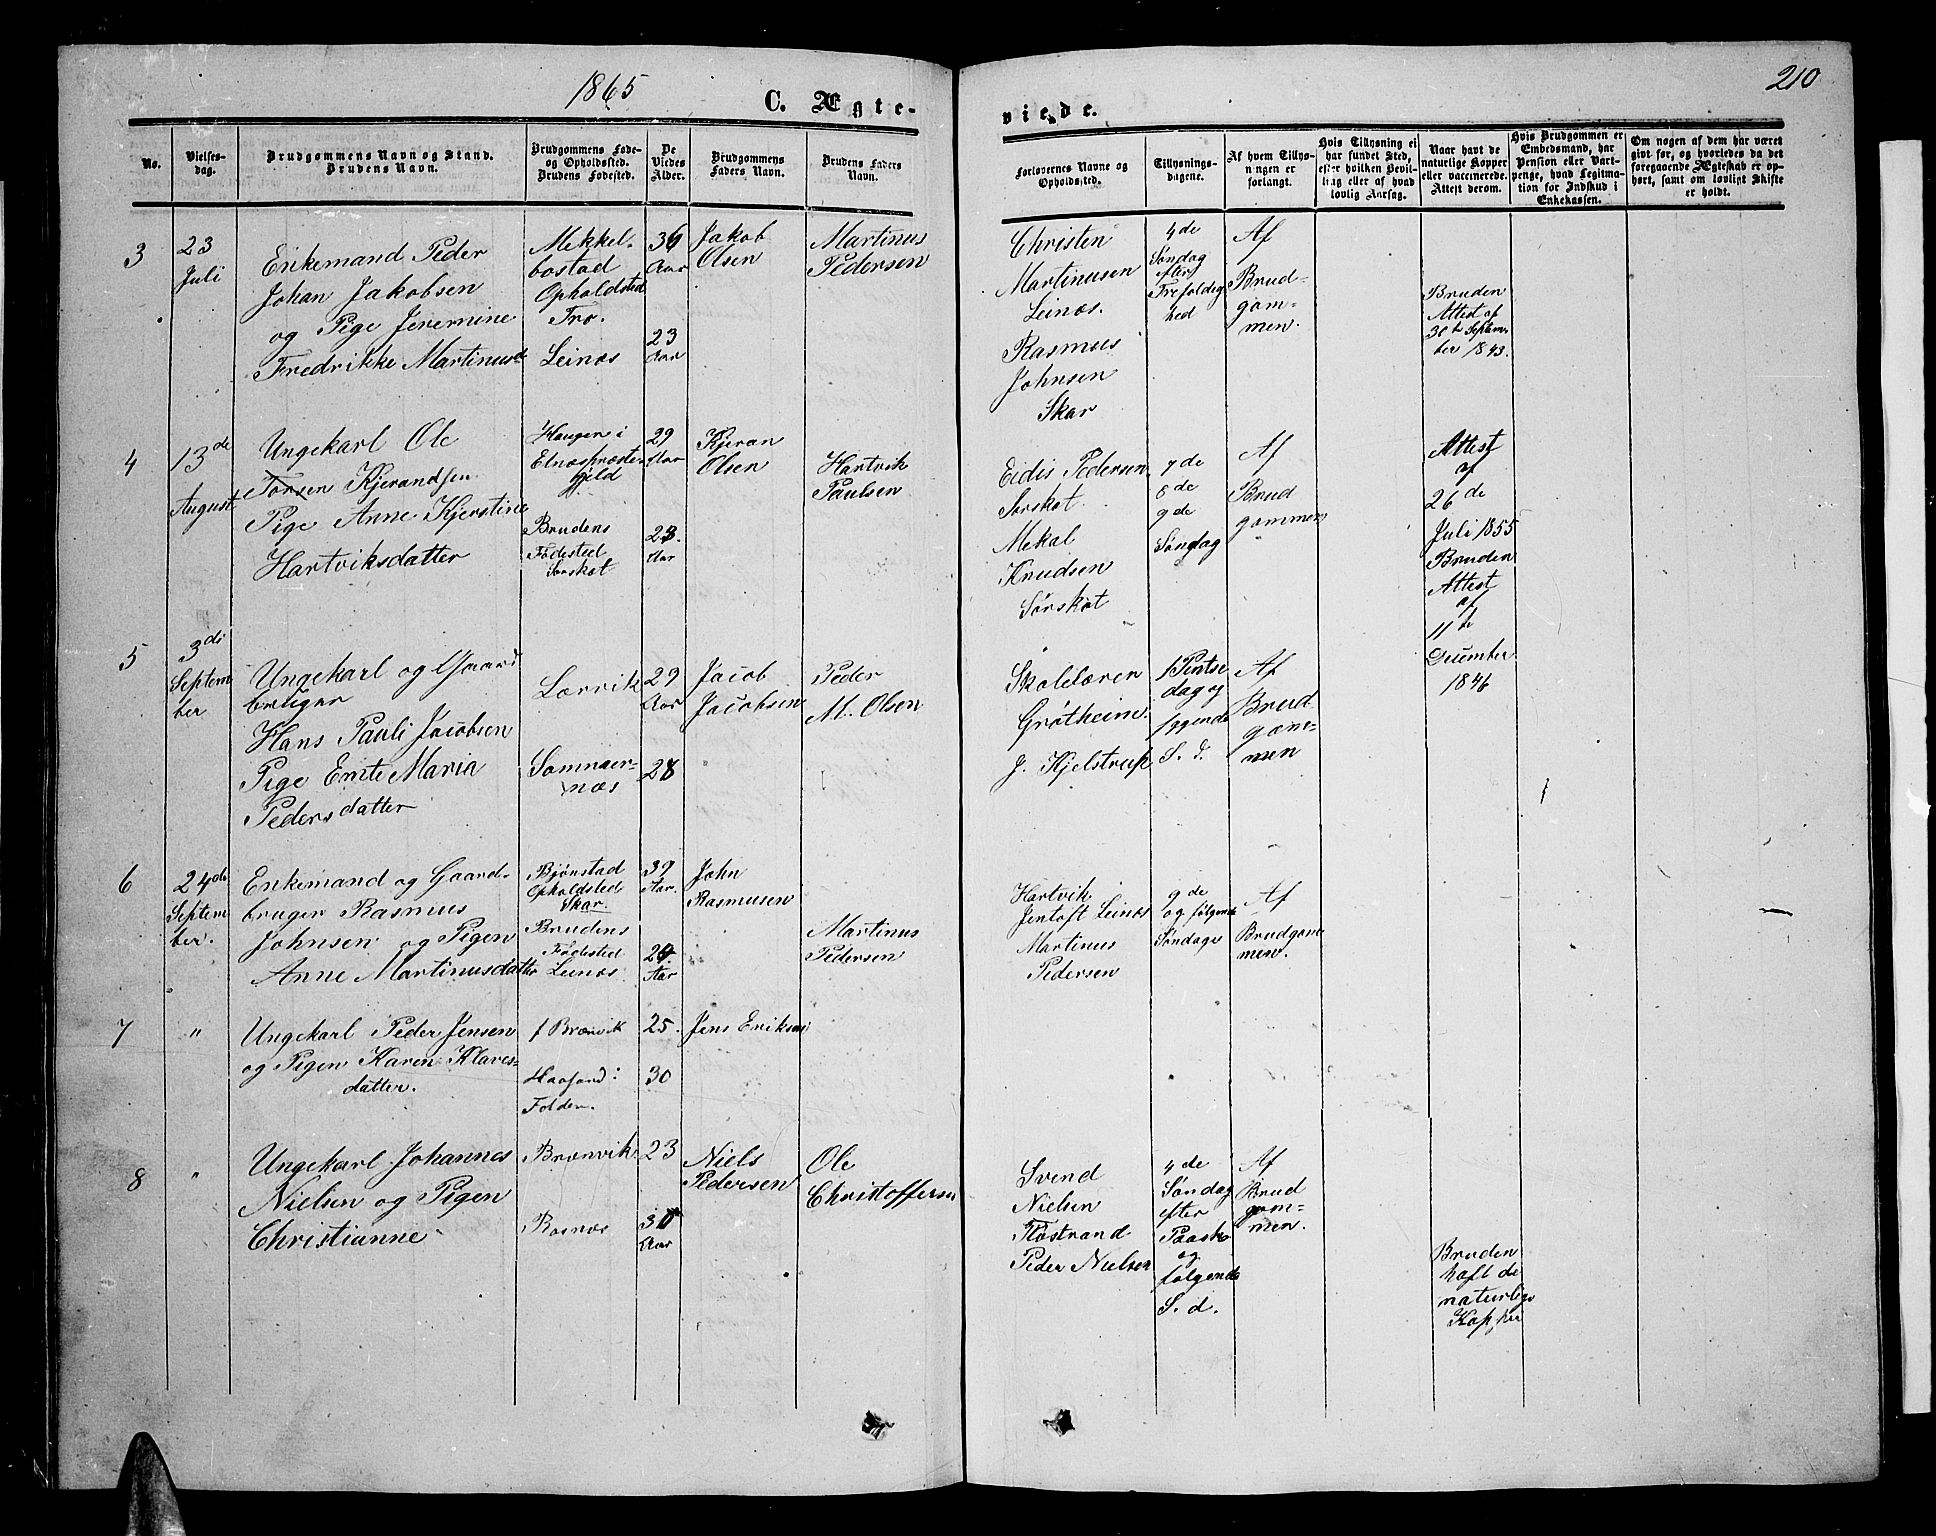 1865
210
C. Ægte-
viede.
No.
Vielses-
dag.
Brudgommens Navn og Stand.
Brudens Navn.
Brudgommens Føde-
og Opholdssted.
Brudens Fødested.
De
Viedes
Alder.
Brudgommens
Faders Navn.
Brudens Faders
Navn.
Forlovernes Navne og
Opholdssted.
Tillysnings-
dagene.
Af hvem Tillys-
ningen er
forlangt.
Hvis Tillysning ei
har fundet Sted,
efter hvilken Bevil-
ling eller af hvad
lovlig Aarsag.
Naar havt de
naturlige Kopper
eller vaccinerede.
Attest derom.
Hvis Brudgommen er
Embedsmand, har
Pension eller Vart-
penge, hvad Legitima-
tion for Indskud i
Enkekassen.
Om nogen af dem har været
gift før, og hvorledes da det
foregaaende Ægteskab er op-
hørt, samt om lovligt Skifte
er holdt.
3
23
Juli
Enkemand Peder
Johan Jakobsen
og Pige Jeremine
Fredrikke Martinusd
Mekkel-
bostad
Opholdsted
Trø.
Leinæs
36
Aar
23
Aar
Jakob
Olsen
Martinus
Pedersen
Christen
Martinusen
Leinæs.
Rasmus
Johnsen
Skar
4de
Søndag
efter
Trefoldig
hed
Af
Brud-
gom-
men.
Bruden
Attest af
30te Septem-
ber 1843.
4
13de
August
Ungekarl Ole
Torsen Kjerandsen
Pige Anne Kjerstine
Hartviksdatter
Haugen i
Elnæspræste
Gjeld
Brudens
Fødested
Sørskot
29
Aar
23.
Aar
Kjeran
Olsen
Hartvik
Paulsen
Eidis Pedersen
Sørskot
Mekal
Knudsen
Sørskot
7de
8de
9de
Søndag
Af
Brud
gommen
Attest
af
26de
Juli 1855
Bruden
Attest
af
11te
December
1846
5
3di
Septem
ber
Ungekarl og Gaard
bruger
Hans Pauli Jacobsen
Pige Ente Maria
Pedersdatter
Lørvik
Somnaer-
næs
29
Aar
28
Jacob
Jacobsen
Peder
M. Olsen
Skolelærer
Grøtheim.
J. Kjelstrup
1 Pintse
dag og
følgende
S. d.
Af
Brud
gom-
men
6
24de
Septem
ber.
Enkemand og Gaard-
bruger Rasmus
Johnsen og Pigen
Anne Martinusdatter
Bjønstad
Opholdsted
Skar.
Brudens
Fødested
Leinæs
39
Aar.
Aar
John
Rasmusen
Martinus
Pedersen
Hartvik
Jentoft Leinæs
Martinus
Pedersen
9de
og følgende
Søndage
Af
Brudgom
men.
7
"
Ungekarl Peder Jensen
og Pigen Karen Klaves-
datter.
f Brænvik
Folden.
25.
30
Jens Eriksen
8
"
Ungekarl Johannes
Nielsen og Pigen
Christianne
Brænvik
Røsnæs
23
Aar
Niels
Pedersen
Ole
Christoffersen
Svend
Nielsen
Flostrand
Peder Nielsen
4de
Søndag
efter
Paaske
og
følgende
S. d.
Af
Brud
gom-
men.
Bruden
haft de
naturlige
Kopper